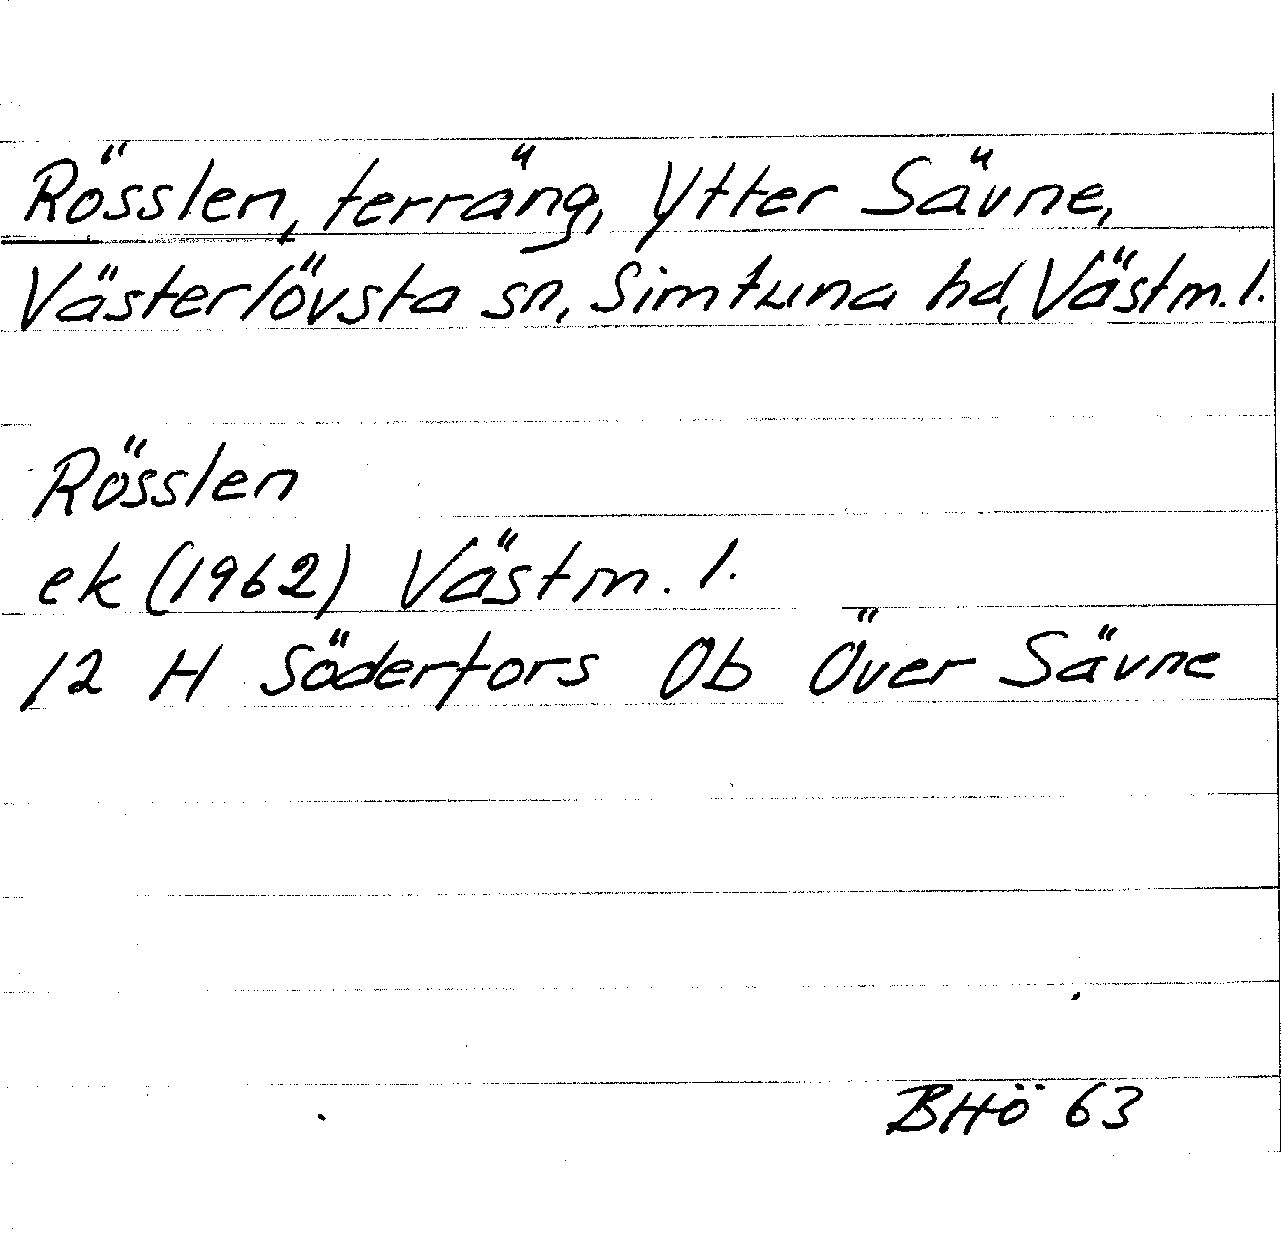 Rösslen, terräng, Ytter Sävne,
Västerlövsta sn, Simtuna hd, Västm. l.
Rösslen
ek (1962) Västm. l.
12 H Söderfors 0b Över Sävne
BHö 63